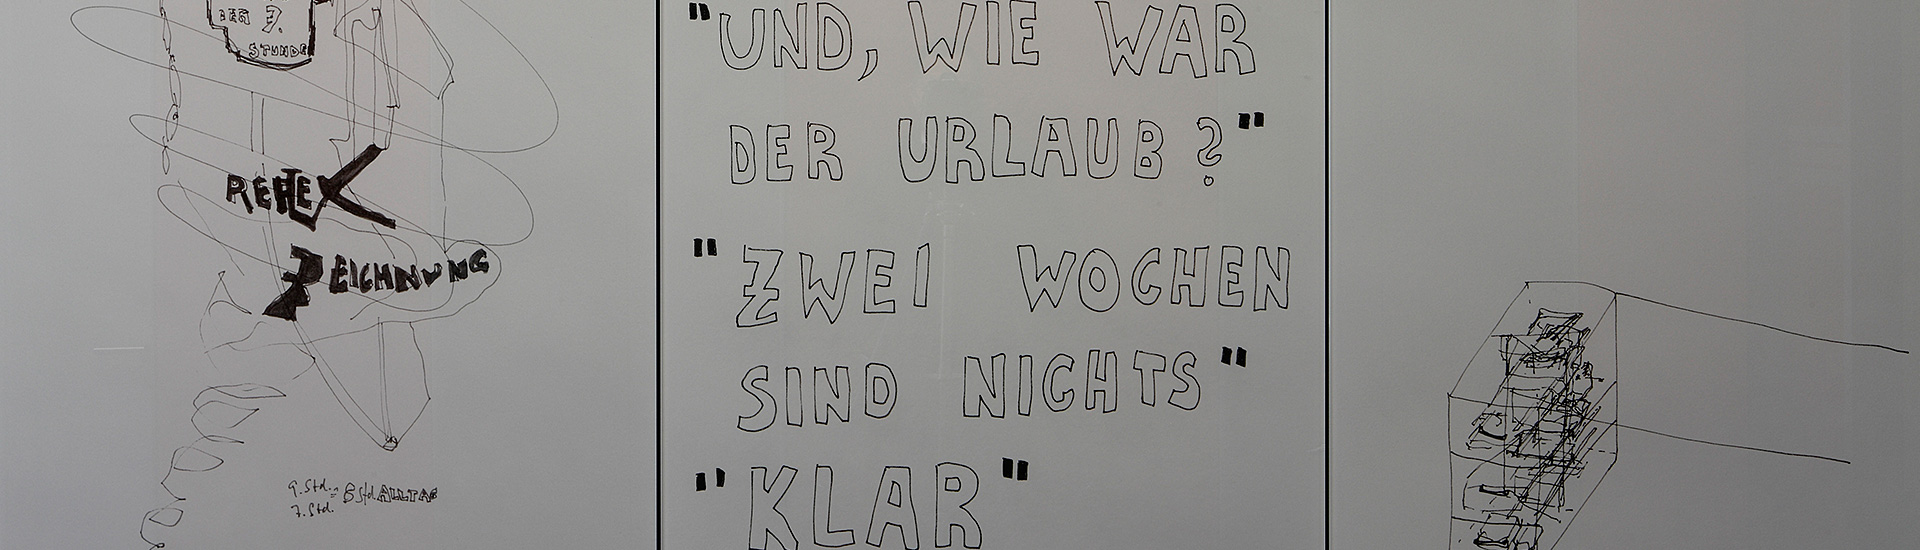 DER 7.
STUNDE
REFLEX
ZEICHNUNG
9. Std.
7. Std. = 6 Std. ALLTAG
"UND, WIE WAR
DER URLAUB?"
"ZWEI WOCHEN
SIND NICHTS"
"KLAR"